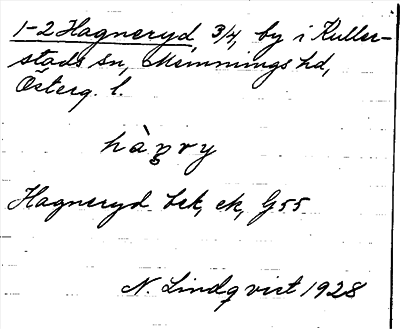 1-2 Hagneryd, 3/4, by i Kuller-
stads sn, Memmings hd,
Österg. l.
Hagneryd bek, ek, G55
N. Lindqvist 1928